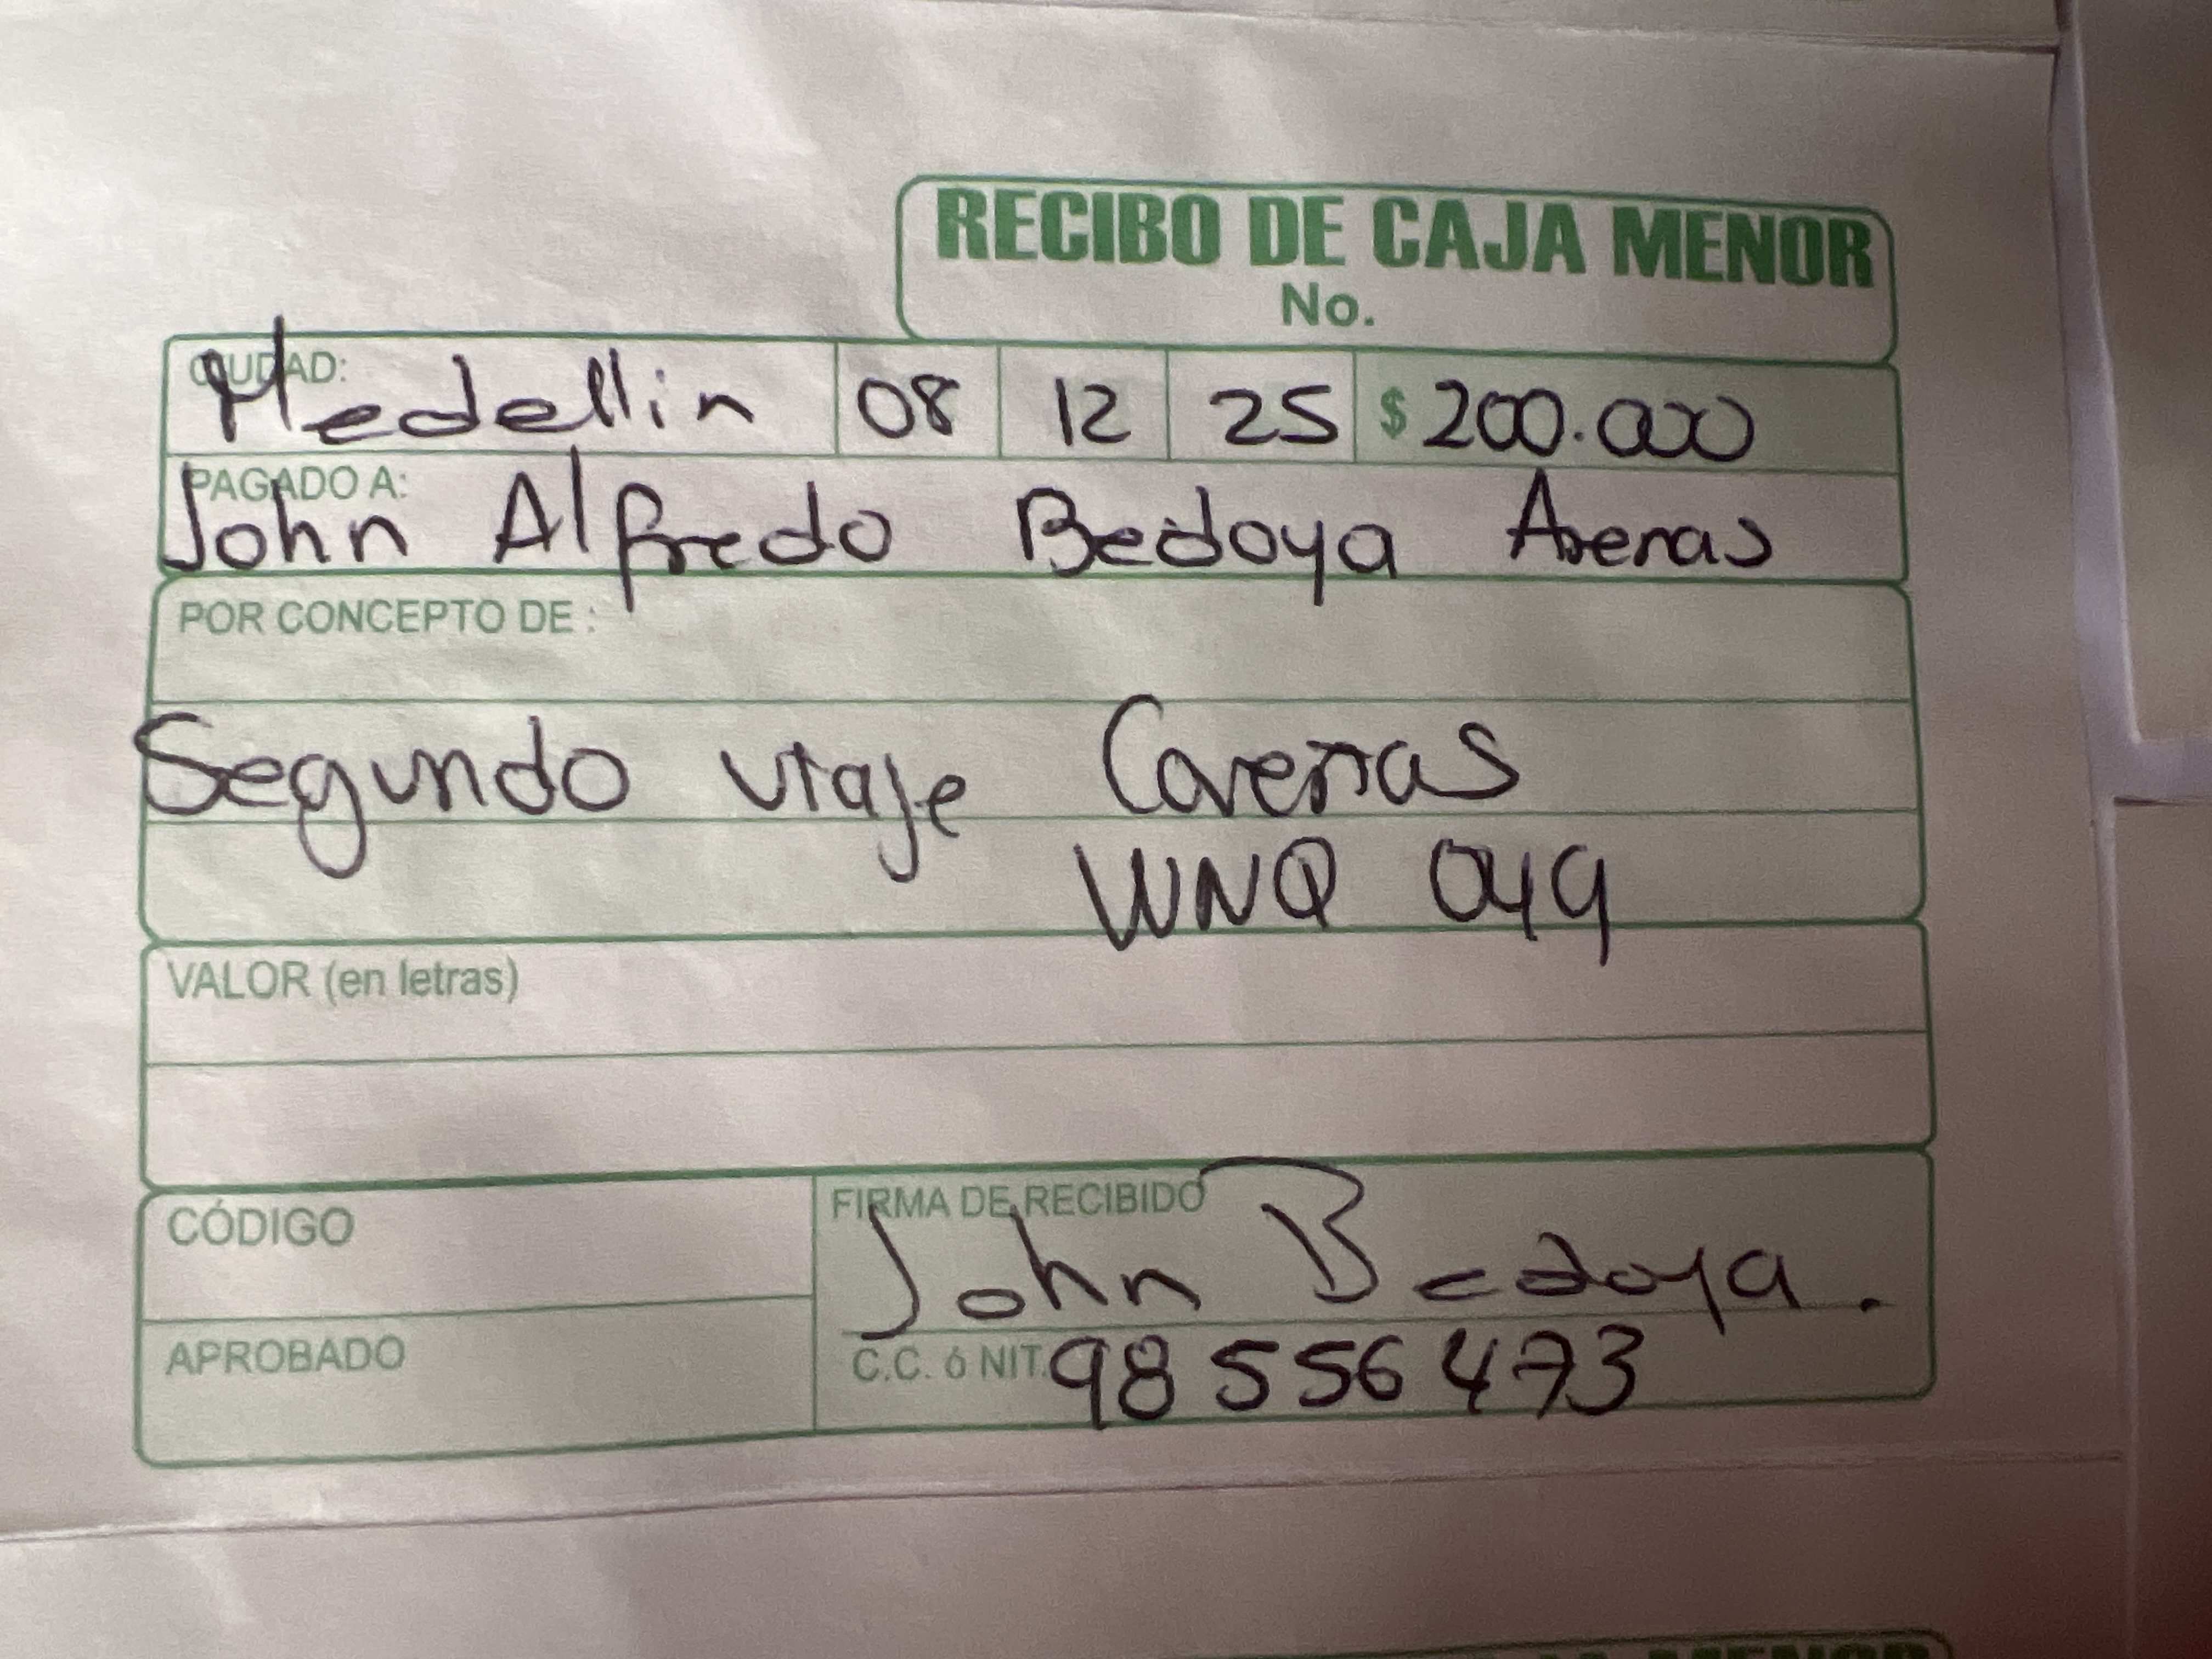 RECIBO DE CAJA MENOR
No.
CIUDAD: Medellin 08 12 25 $ 200.000
PAGADO A:
John Alfredo Bedoya Arenas
POR CONCEPTO DE :
Segundo viaje Coveñas
WNQ 049
VALOR (en letras)
CÓDIGO
FIRMA DE RECIBIDO
John Bedoya.
APROBADO
C.C. ó NIT. 98 556 473